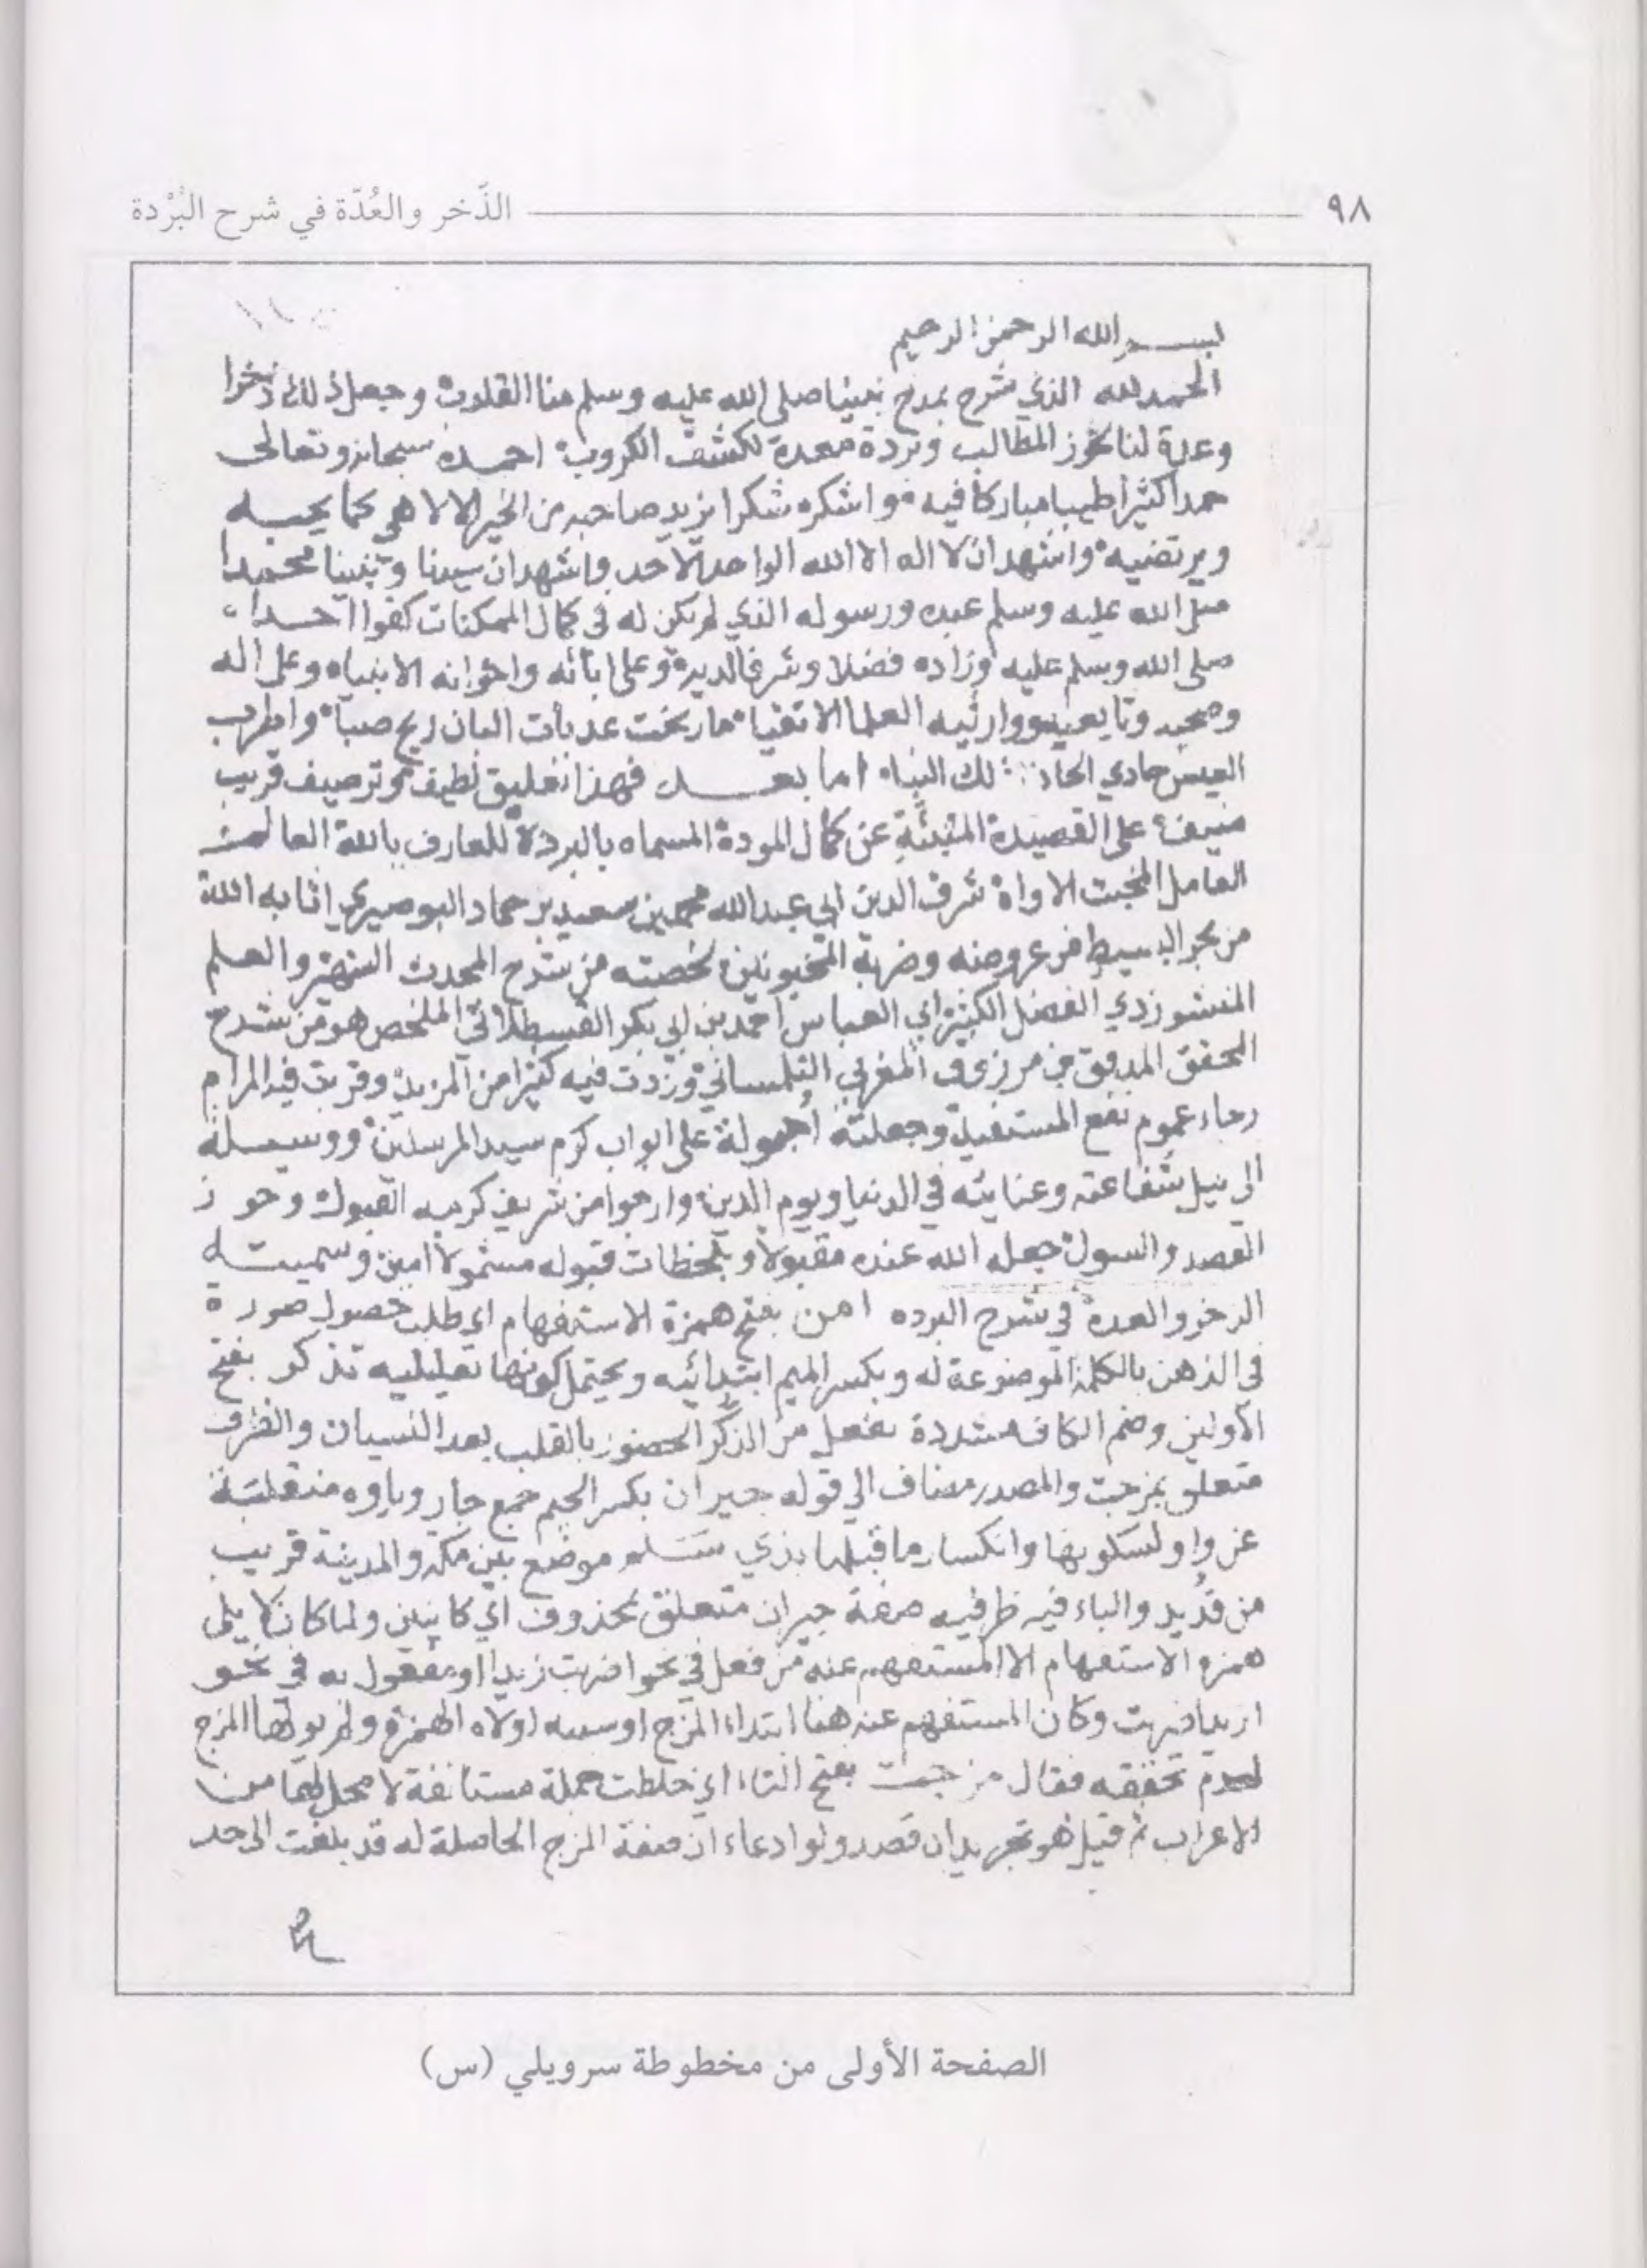 ٩٨ الذّخر والعُدّة في شرح البُرْدة
بسم الله الرحمن الرحيم
الحمد لله الذي شرح بمدح نبينا صلى الله عليه وسلم منا القلوب وجعل ذلك ذخرا
وعدة لنا لحوز المطالب وبردة معدة لكشف الكروب احمده سبحانه وتعالى
حمدا كثيرا طيبا مباركا فيه واشكره شكرا يزيد صاحبه من الخير الالاهي كما يحبه
ويرتضيه واشهد ان لا اله الا الله الواحد الاحد واشهد ان سيدنا ونبينا محمدا
صلى الله عليه وسلم عبده ورسوله الذي لم يكن له في كمال الممكنات كفوا احدا
صلى الله وسلم عليه وزاده فضلا وشرفا لديه وعلى ابائه واخوانه الانبياء وعلى اله
وصحبه وتابعيه ووارثيه العلما الاتقياء ما رنحت عذبات البان ريح صبا واطرب
العيس حادي لك النبا اما بعد فهذا تعليق لطيف وترصيف قريب
منيف على القصيدة المنبئة عن كمال المودة المسماه بالبردة للعارف بالله العالم
العامل المخبت الاواه شرف الدين ابي عبد الله محمد بن سعيد بن حماد البوصيري اثابه الله
من بحر البسيط من عروضه وضربه المخبونين لخصته من شرح المحدث الشهير والعلم
المنشور ذي الفضل الكثير ابي العباس احمد بن ابي بكر القسطلاني الملخص هو من شرح
المحقق المدقق بن مرزوق المغربي التلمساني وزدت فيه كثيرا من المزيد وقربت فيه المرام
رجاء عموم نفع المستفيد وجعلته على ابواب كرم سيد المرسلين ووسيلة
الى نيل شفاعته وعنايته في الدنيا ويوم الدين وارجوا من شريف كريمه القبول وحوز
القصد والسول جعله الله عنده مقبولا وبلحظات قبوله مشمولا امين وسميته
الذخر والعدة في شرح البرده امن بفتح همزة الاستفهام اي طلب حصول صورة
في الذهن بالكلمة الموضوعة له وبكسر الميم ابتدائيه ويحتمل كونها تعليليه تذكر بفتح
الاولين وضم الكاف مشددة تفعل من الذكر الحضور بالقلب بعد النسيان والظرف
متعلق بمزجت والمصدر مضاف الى قوله جيران بكسر الجيم جمع جار وياوه منقلبة
عن واو لسكونها وانكسار ما قبلها بذي سلم موضع بين مكة والمدينة قريب
من قديد والباء فيه ظرفيه صفة جيران متعلق بمحذوف اي كاينين ولما كان لا يلي
همزه الاستفهام الا المستفهم عنه من فعل في نحو اضربت زيدا او مفعول به في نحو
ازيدا ضربت وكان المستفهم عنه هنا ابتداء المزج او سببه اولاه الهمزة ولم يولها المزج
لعدم تحققه فقال مزجت بفتح التاء اي خلطت جملة مستانفة لا محل لها من
الاعراب ثم قيل هو تجريد ان قصد ولو ادعاء ان صفة المزج الحاصلة له قد بلغت الى حد
الصفحة الأولى من مخطوطة سرويلي (س)